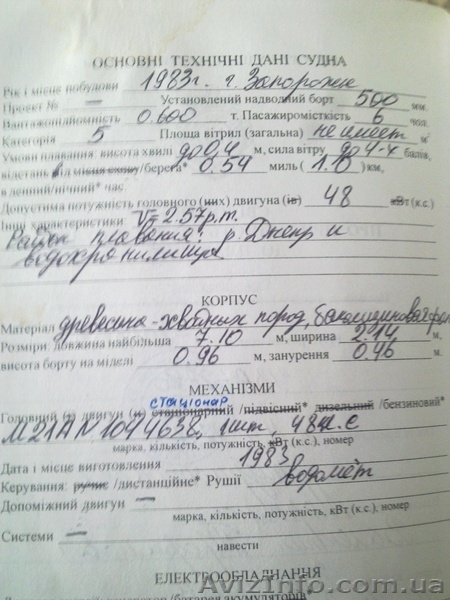 ОСНОВНІ ТЕХНІЧНІ ДАНІ СУДНА
Рік і місце побудови 1983г. г. Запорожье
Проект № — Установлений надводний борт 500 мм.
Вантажопідйомність 0.600 т. Пасажиромісткість 6 чол.
Категорія 5 Площа вітрил (загальна) не имеет м²
Умови плавання: висота хвилі до 0,4 м, сила вітру до 4-х балів,
відстань від місця сходу/берега* 0.54 миль (1.0) км,
в денний/нічний* час.
Допустима потужність головного (них) двигуна (ів) 48 кВт (к.с.)
Інші характеристики V=2.57 р.т.
Район плавания: р. Днепр и
водохранилища
КОРПУС
Матеріал древесина-хвойных пород,
Розміри: довжина найбільша 7.10 м, ширина 2.14 м,
висота борту на міделі 0.96 м, занурення 0.46 м.
МЕХАНІЗМИ
стаціонар
Головний (і) двигун (и) стаціонарний /підвісний* дизельний /бензиновий*
М21А N 1044638, 1шт, 48л.с
марка, кількість, потужність, кВт (к.с.), номер
Дата і місце виготовлення 1983
Керування: ручне /дистанційне* Рушії водомёт
Допоміжний двигун —
марка, кількість, потужність, кВт (к.с.), номер
Системи —
навести
ЕЛЕКТРООБЛАДНАННЯ
генератор/батарея акумуляторів
AvizInfo.com.ua